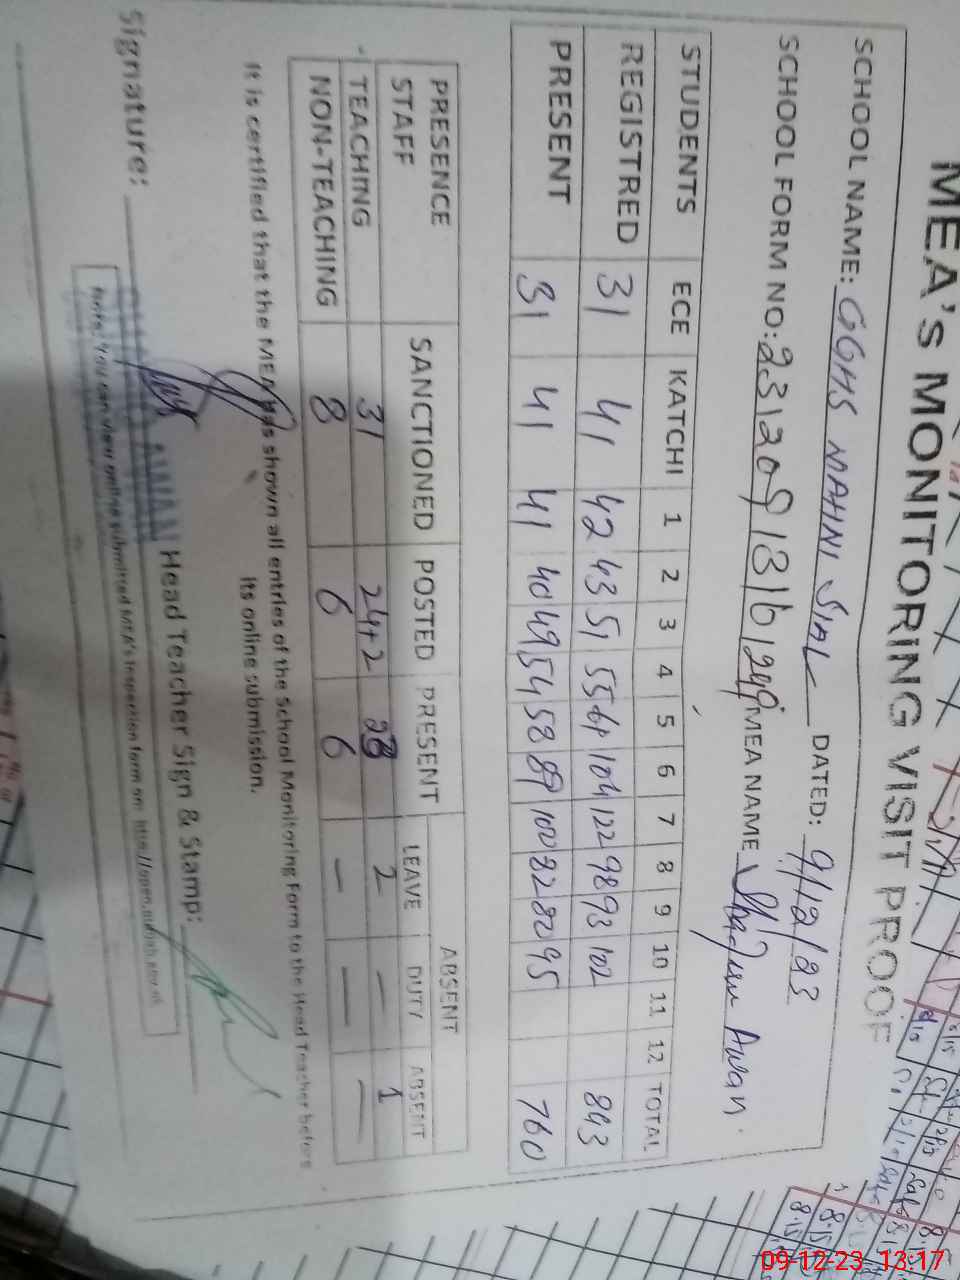 MEA'S MONITORING VISIT PROOF
SCHOOL NAME: GGHS MAHNI SIAL DATED: 9/12/23
SCHOOL FORM NO: MEA NAME Awan.
STUDENTS ECE KATCHI 1 2 3 4 5 6 7 8 9 10 11 12 TOTAL
REGISTRED 31 41 42 43 51 55 61 104 122 98 93 102 843
PRESENT 31 41 41 40 49 54 58 89 100 82 80 95 760
PRESENCE SANCTIONED POSTED PRESENT ABSENT
STAFF LEAVE DUTY ABSENT
TEACHING 31 24+2 23 2 — 1
NON-TEACHING 8 6 6 — — —
It is certified that the MEA has shown all entries of the School Monitoring Form to the Head Teacher before
its online submission.
Signature: Head Teacher Sign & Stamp:
Note: You can view online submitted MEA's inspection form on: http://open.punjab.gov.pk
09-12-23 13:17